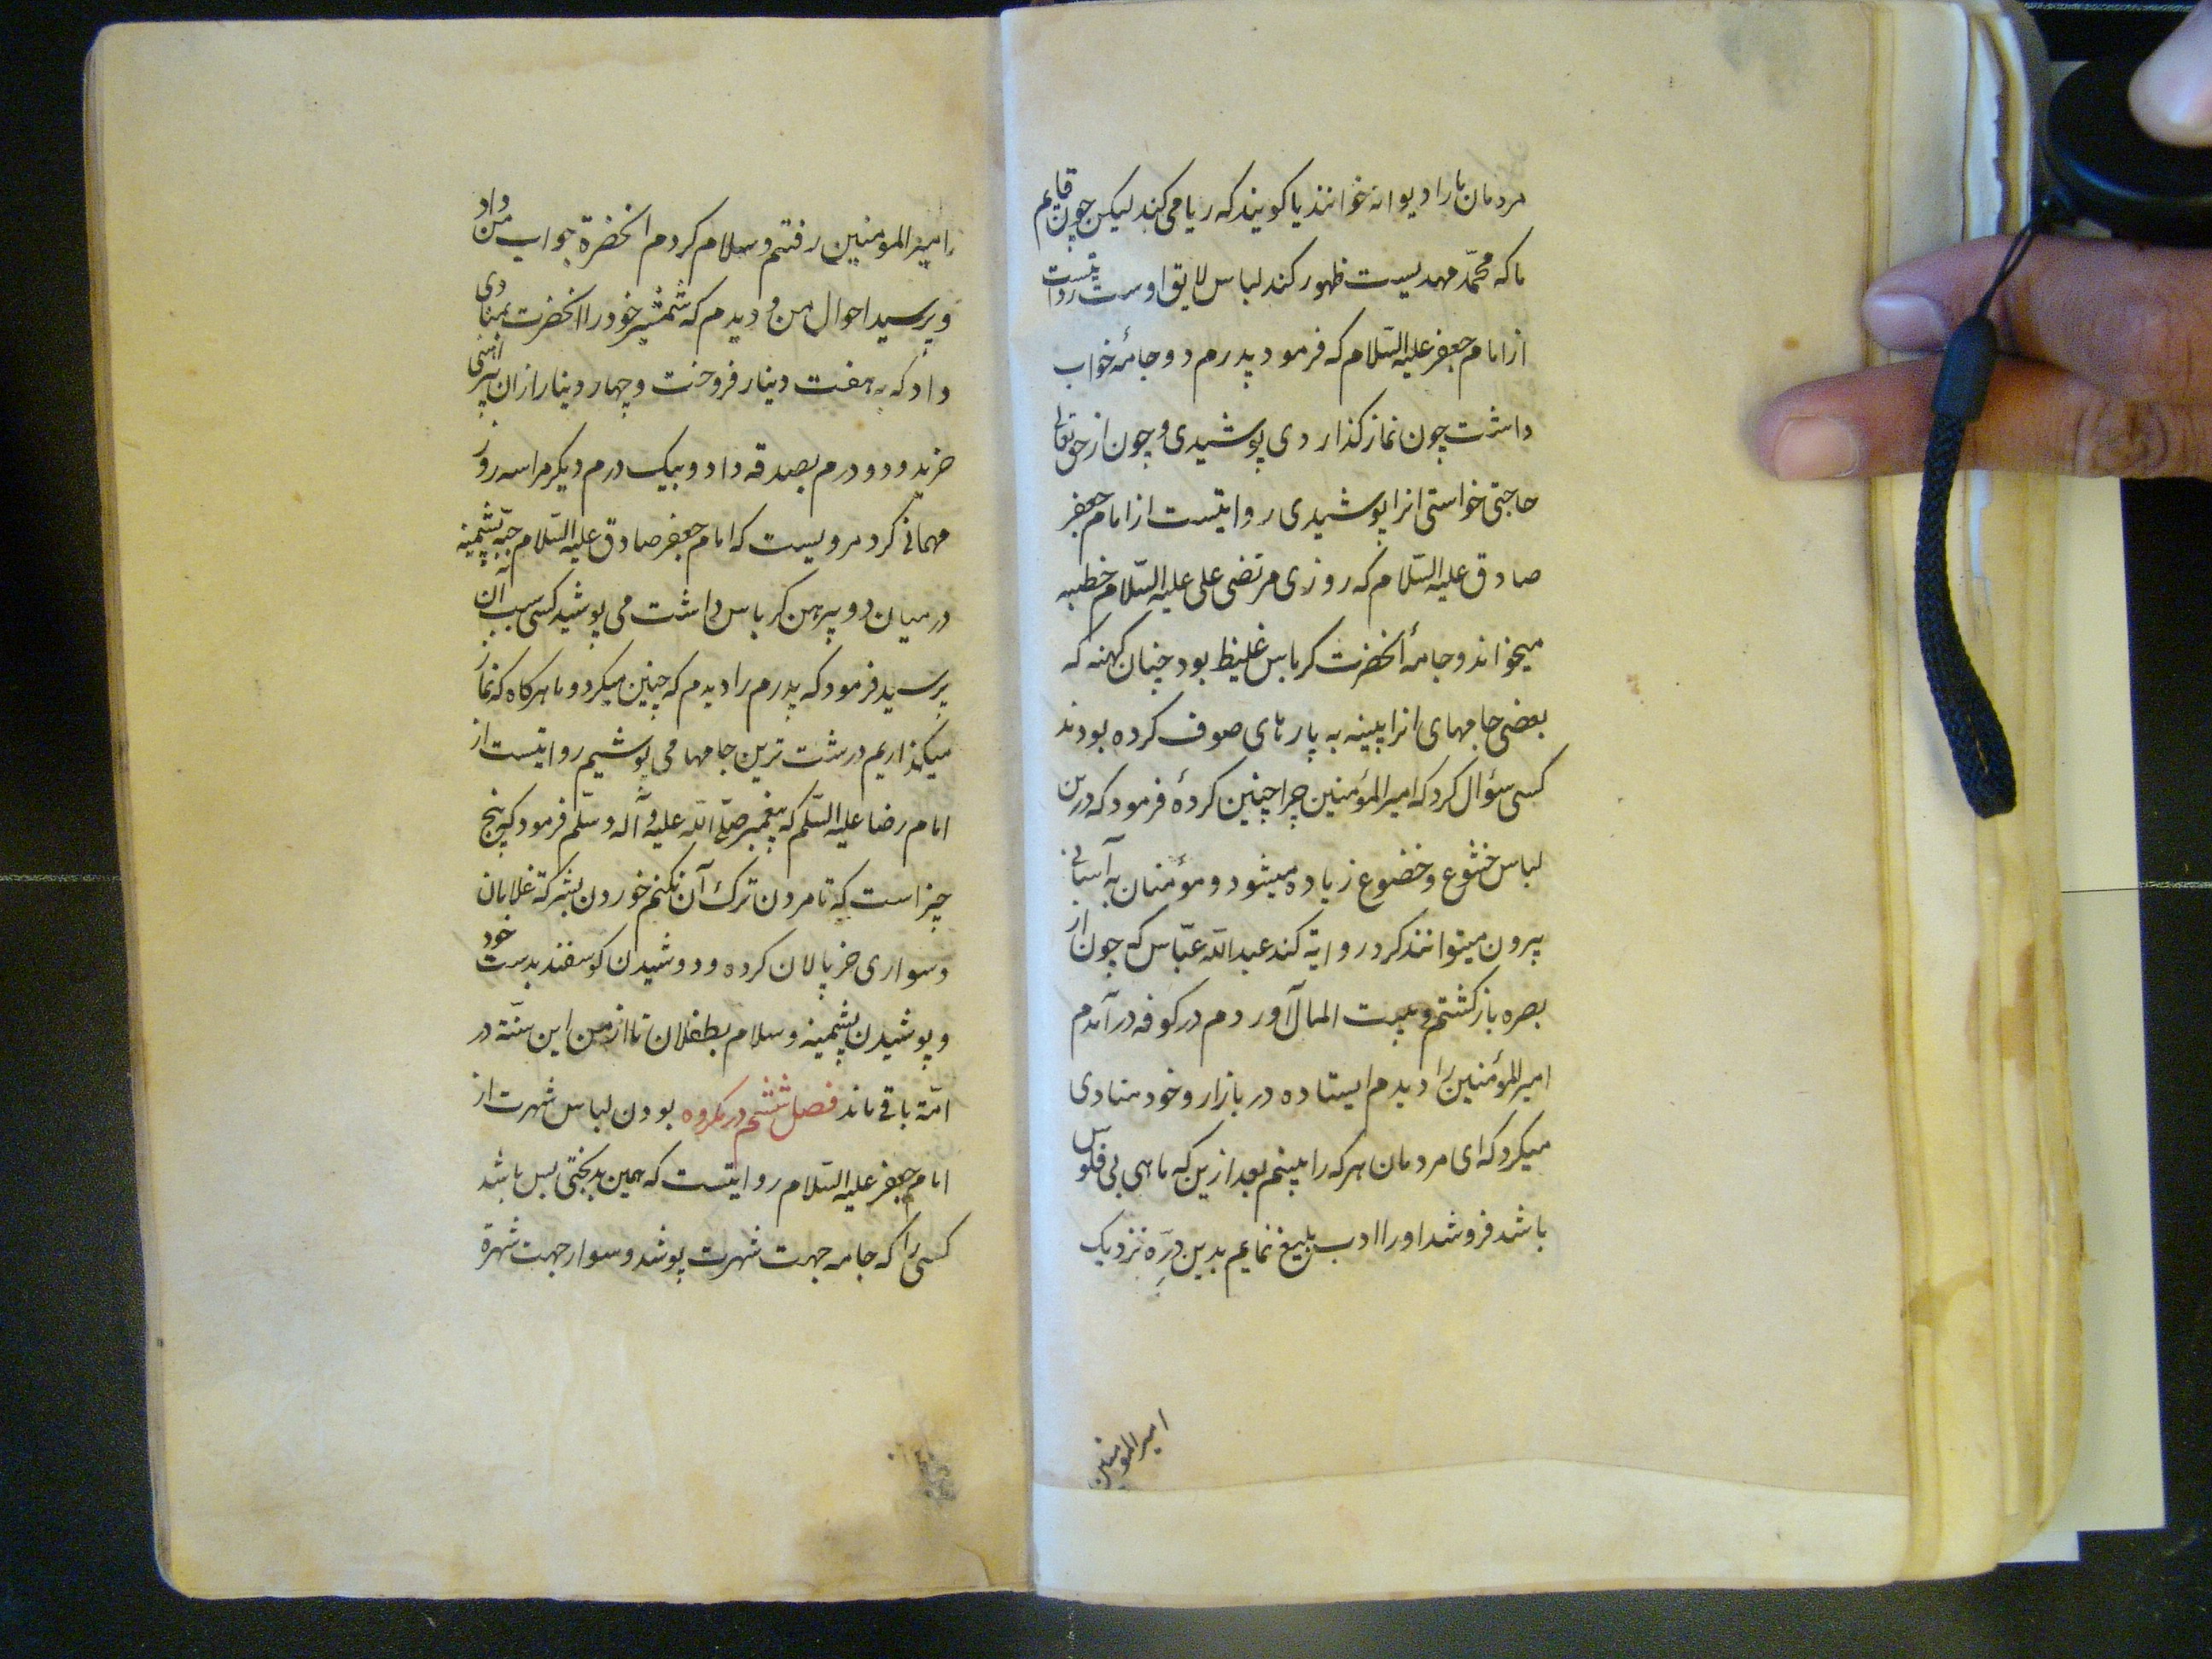 مردمان ما را دیوانه خوانند یا کویند که ریا می کند لیکن چون قایم
ما که محمّد مهدیست ظهور کند لباس لایق اوست روایتست
از امام جعفر علیه السّلام که فرمود پدرم دو جامهٔ خواب
داشت چون نماز کذاردی پوشیدی و چون از حق تعالی
حاجتی خواستی انرا پوشیدی روایتست از امام جعفر
صادق علیه السّلام که روزی مرتضی علی علیه السّلام خطبه
میخواند و جامهٔ انحضرت کرباس غلیظ بود چنان کهنه که
بعضی جامهای انرا پینه به پارهای صوف کرده بودند
کسی سؤال کرد که امیر المؤمنین چرا چنین کردهٔ فرمود که درین
لباس خشوع و خضوع زیاده میشود و مؤمنان به آسانی
پیرون میتوانند کرد روایة کند عبد الله عبّاس که چون از
بصره باز کشتم و بیت المال آوردم در کوفه در آمدم
امیر المؤمنین را دیدم ایستاده در بازار و خود منادی
میکرد که ای مردمان هر که را بینم بعد ازین که ماهی بی فلوس
باشد فروشد او را ادب بلیغ نمایم بدین درّه نزدیک
امیر المومنین
امیر المومنین رفتم و سلام کردم انحضرة جواب من داد
و پرسید احوال من و دیدم که شمشیر خود را انحضرت بمنادی
داد که به هفت دینار فروخت و چهار دینار ازان پیراهنی
خرید و دو درم بصدقه داد و بیک درم دیکر مرا سه روز
مهمانی کرد مرویست که امام جعفر صادق علیه السّلام جبّه پشمینه
در میان دو پیرهن کرباس داشت می پوشید کسی سبب آن
پرسید فرمود که پدرم را دیدم که چنین میکرد و ما هر کاه که نماز
میکذاریم درشت ترین جامها می پوشیم روایتست از
امام رضا علیه السّلم که پیغمبر صلّی الله علیه و آله وسلّم فرمود که پنج
چیز است که تا مردن ترک آن نکنم خوردن بشرکة غلامان
و سواری خر پالان کرده و دوشیدن کوسفند بدست خود
و پوشیدن پشمینه و سلام بطفلان تا از من این سنّة در
امّة باقی ماند فصل ششم در مکروه بودن لباس شهرت از
امام جعفر علیه السّلام روایتست که همین بدبختی بس باشد
کسی را که جامه جهت شهرت پوشد و سوار جهت شهرة